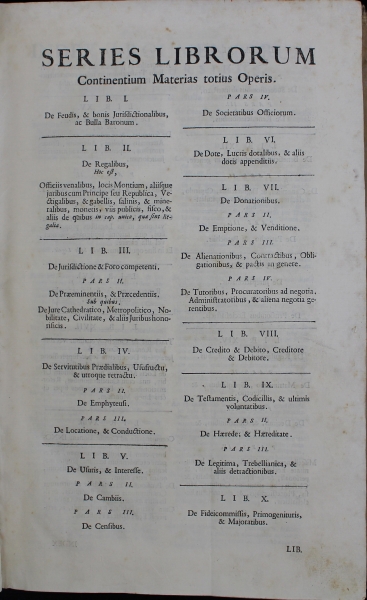 SERIES LIBRORUM
Continentium Materias totius Operis.
LIB. I.
De Feudis, & bonis Jurisdictionalibus,
ac Bulla Baronum.
LIB. II.
De Regalibus,
Hoc est,
Officiis venalibus, locis Montium, aliisque
juribus cum Principe seu Republica, Ve-
ctigalibus, & gabellis, salinis, & mine-
ralibus, monetis, via publica, fisco, &
aliis de quibus in cap. unico, quæ sint Re-
galia.
LIB. III.
De Jurisdictione & Foro competenti.
PARS II.
De Præeminentiis, & Præcedentiis.
Sub quibus.
De Jure Cathedratico, Metropolitico, No-
bilitate, Civilitate, & aliis Juribus hono-
rificis.
LIB. IV.
De Servitutibus Prædialibus, Usufructu,
& utroque retractu.
PARS II.
De Emphyteusi.
PARS III.
De Locatione, & Conductione.
LIB. V.
De Usuris, & Interesse.
PARS II.
De Cambiis.
PARS III.
De Censibus.
PARS IV.
De Societatibus Officiorum.
LIB. VI.
De Dote, Lucris dotalibus, & aliis
dotis appenditiis.
LIB. VII.
De Donationibus.
PARS II.
De Emptione, & Venditione.
PARS III.
De Alienationibus, Contractibus, Obli-
gationibus, & pactis in genere.
PARS IV.
De Tutoribus, Procuratoribus ad negotia,
Administratoribus, & aliena negotia ge-
rentibus.
LIB. VIII.
De Credito & Debito, Creditore
& Debitore.
LIB. IX.
De Testamentis, Codicillis, & ultimis
voluntatibus.
PARS II.
De Hærede, & Hæreditate.
PARS III.
De Legitima, Trebellianica, &
aliis detractionibus.
LIB. X.
De Fideicommissis, Primogenituris,
& Majoratibus.
LIB.